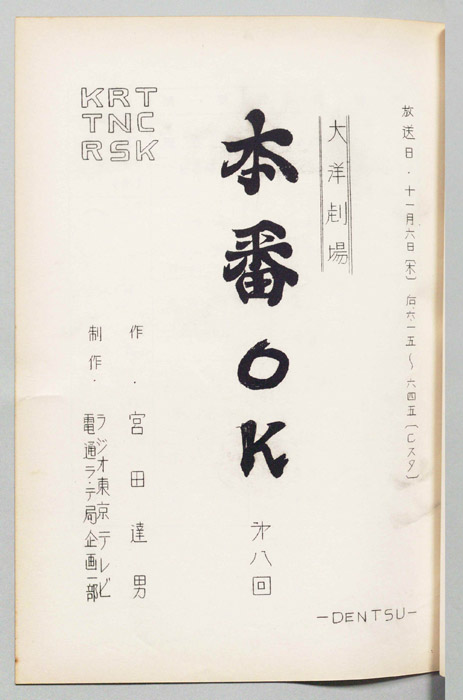 放送日・十一月六日（木）后.六.一五〜六四五（Cスタ）
大洋劇場
本番OK
才八回
作・宮田達男
制作・ラジオ東京テレビ
電通ラ・テ局企画一部
KRT
TNC
RSK
-DENTSU-